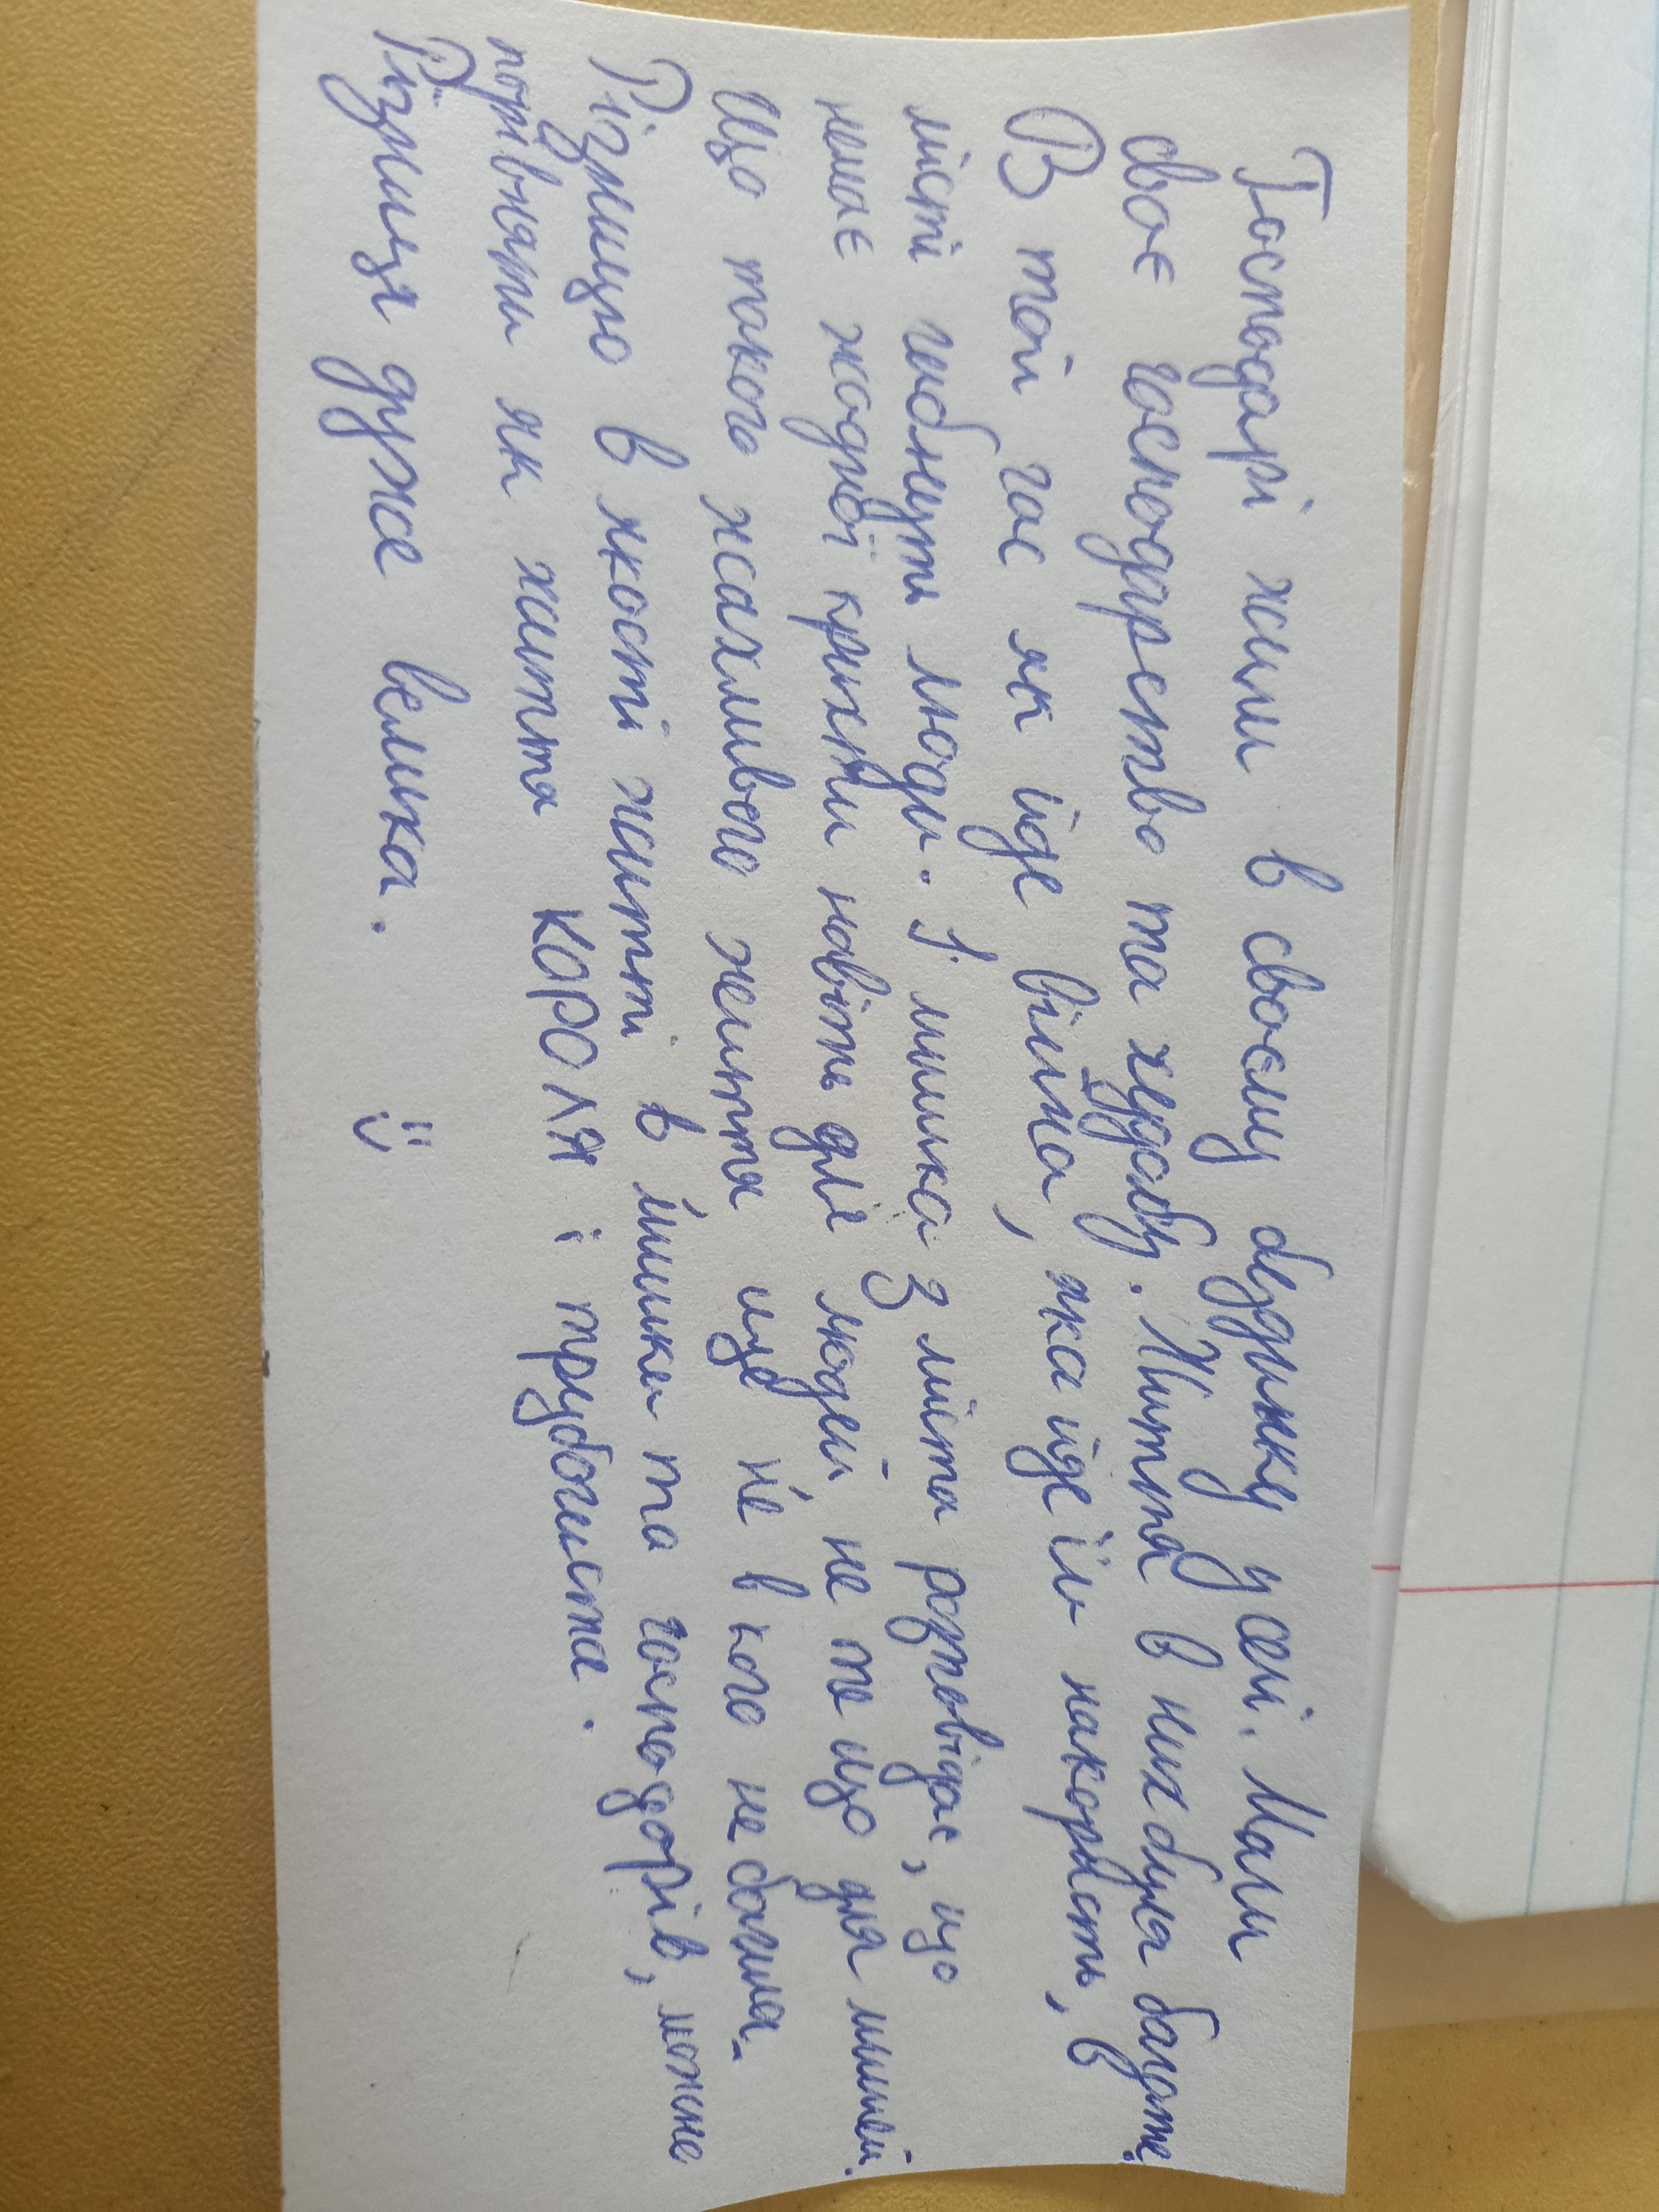 Господарі жили в своєму будинку у селі. Мали
своє господарство та худобу. Життя в них була багате.
В той час як йде війна, яка йде їм на користь, в
місті гибнуть люди. І мишка з міста розповідає, що
немає жодної крихти навіть для людей не те що для мишей.
Що такого жахливого життя ще не в кого не бачила.
Різницю в якості житті в мишки та господорів, можне
порівняти як життя КОРОЛЯ і трубочиста.
Різниця дуже велика. :)